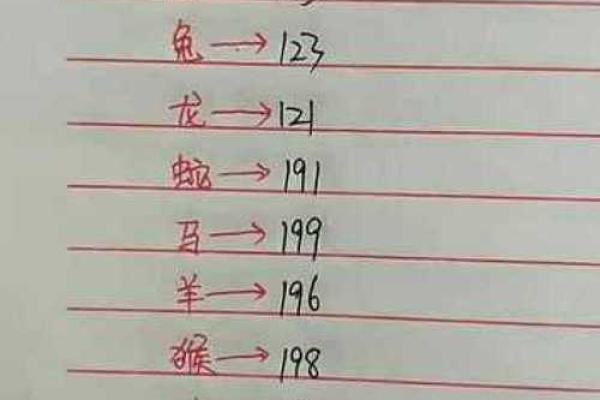 兔→123
龙→121
蛇→191
马→199
羊→196
猴→198